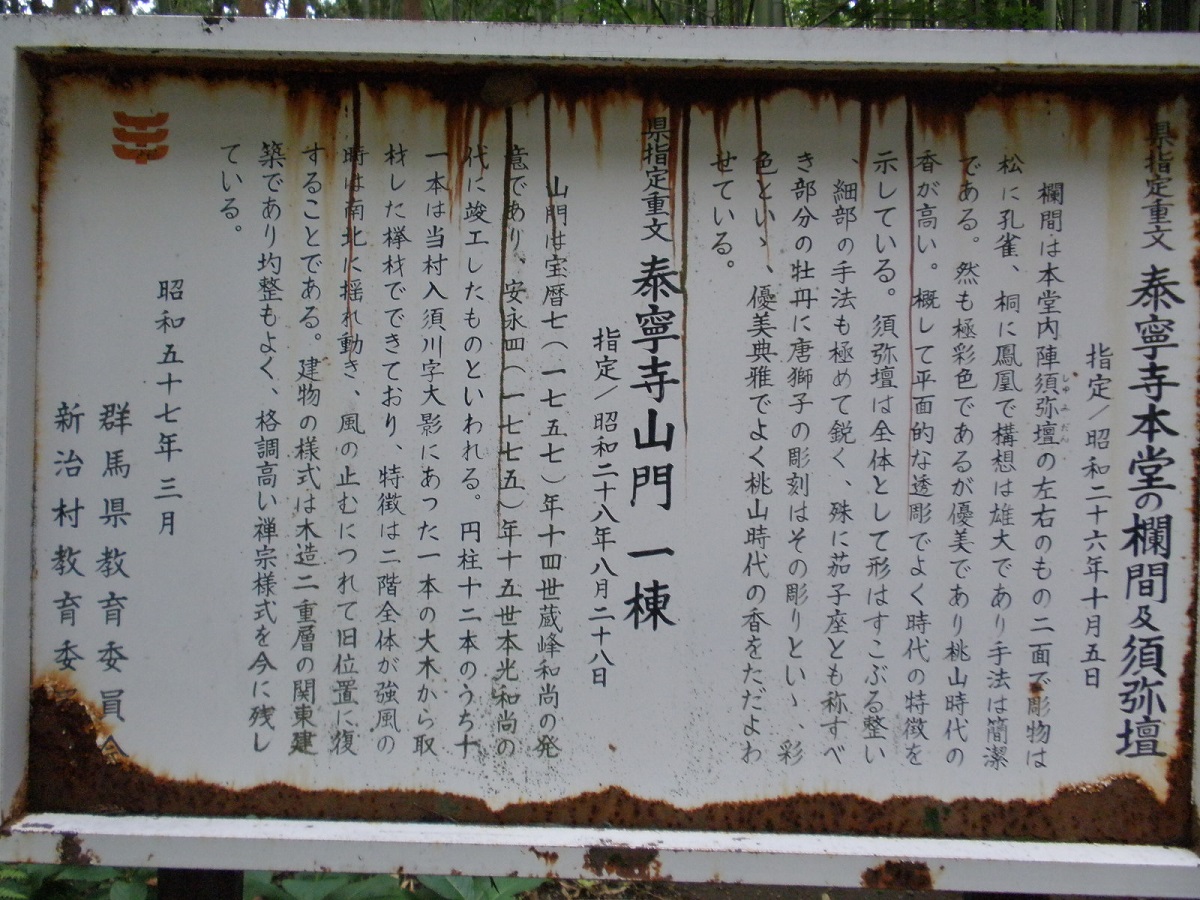 県指定重文 泰寧寺本堂の欄間及須弥壇
指定/昭和二十六年十月五日
欄間は本堂内陣須弥壇の左右のもの二面で彫物は
しゅみだん
松に孔雀、桐に鳳凰で構想は雄大であり手法は簡潔
である。然も極彩色であるが優美であり桃山時代の
香が高い。概して平面的な透彫でよく時代の特徴を
示している。須弥壇は全体として形はすこぶる整い
、細部の手法も極めて鋭く、殊に茄子座とも称すべ
き部分の牡丹に唐獅子の彫刻はその彫りといゝ、彩
色といゝ、優美典雅でよく桃山時代の香をただよわ
せている。
県指定重文 泰寧寺山門 一棟
指定/昭和二十八年八月二十八日
山門は宝暦七(一七五七)年十四世蔵峰和尚の発
意であり、安永四(一七七五)年十五世本光和尚の
代に竣工したものといわれる。円柱十二本のうち十
一本は当村入須川字大影にあった一本の大木から取
材した欅材でできており、特徴は二階全体が強風の
時は南北に揺れ動き、風の止むにつれて旧位置に復
することである。建物の様式は木造二重層の関東建
築であり均整もよく、格調高い禅宗様式を今に残し
ている。
昭和五十七年三月
群馬県教育委員会
新治村教育委